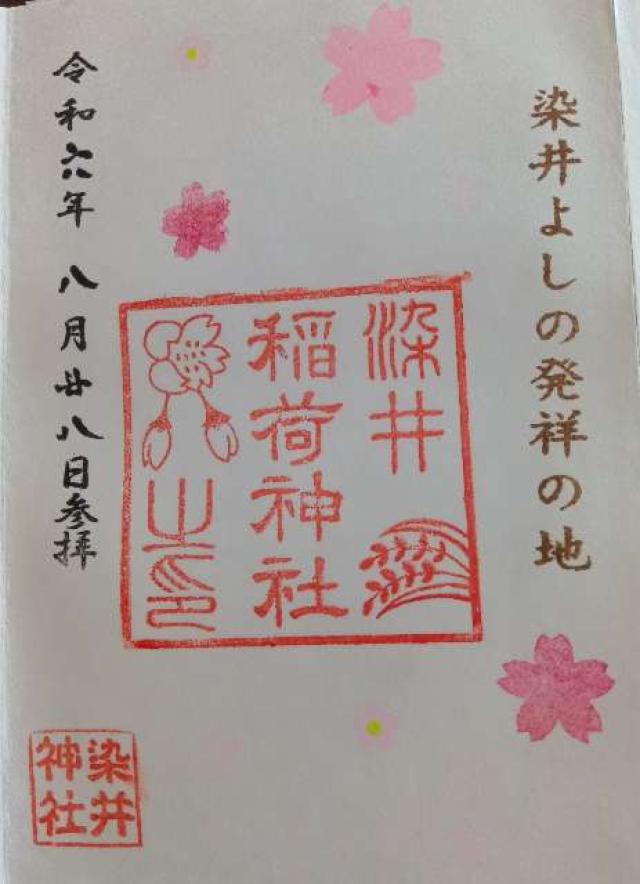 染井よしの発祥の地
染井
稲荷神社
之印
令和六年 八月廿八日参拝
染井
神社